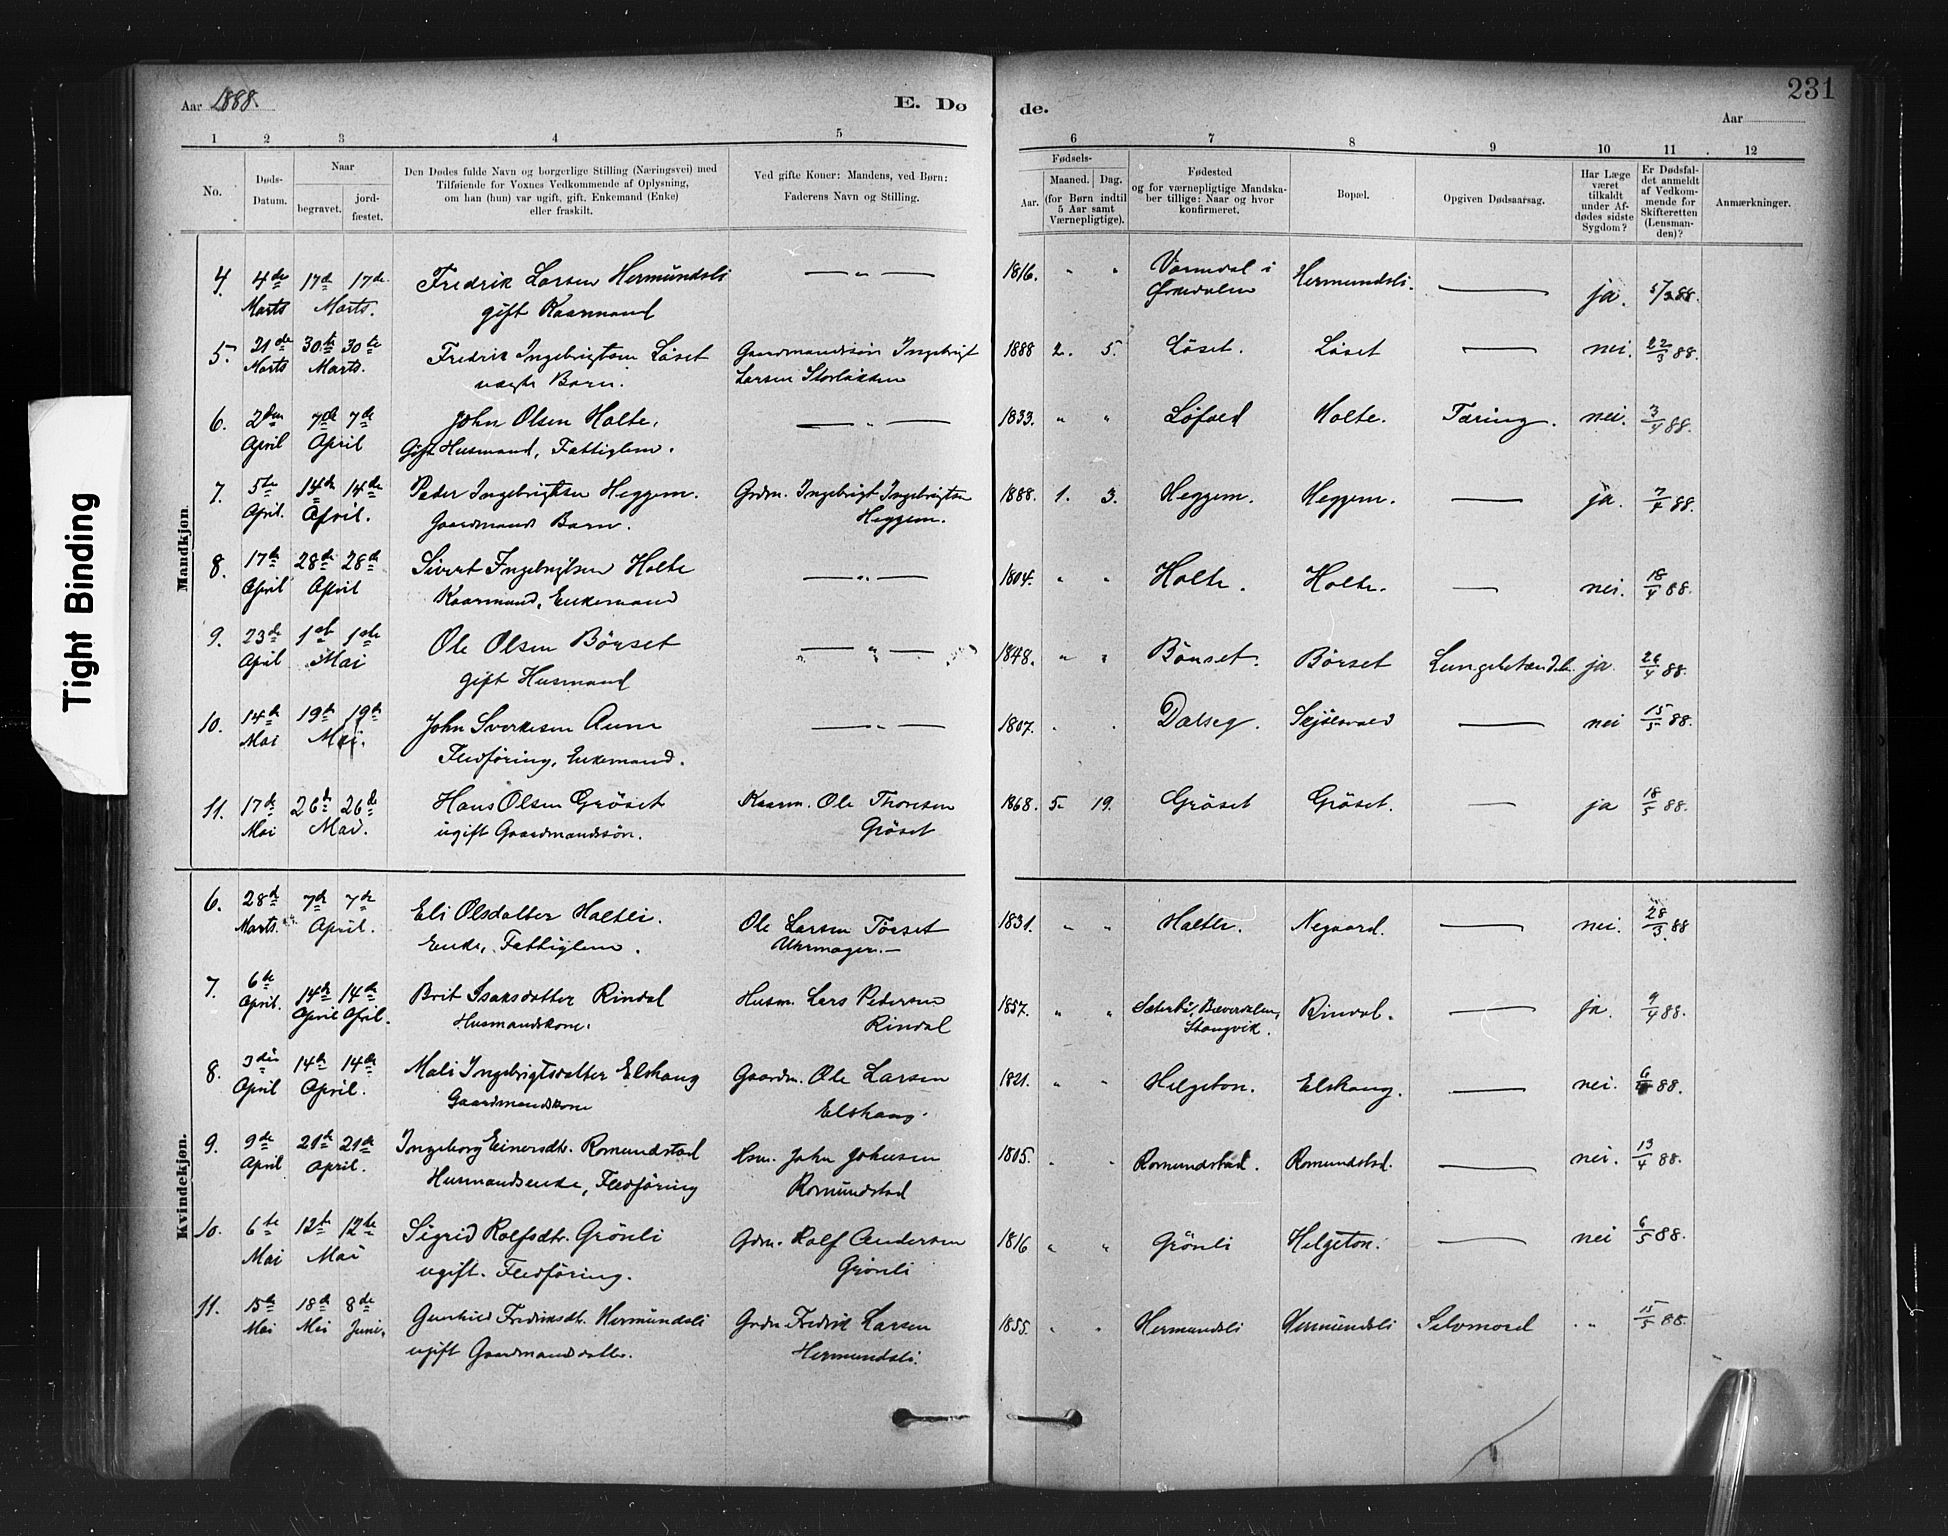 231
Aar 1888.
E. Dø
de.
Aar
1 2 3 4 5 6 7 8 9 10 11 12
No.
Døds-
Datum.
Naar
begravet.
jord-
fæstet.
Den Dødes fulde Navn og borgerlige Stilling (Næringsvei) med
Tilføiende for Voxnes Vedkommende af Oplysning,
om han (hun) var ugift, gift, Enkemand (Enke)
eller fraskilt.
Ved gifte Koner: Mandens, ved Børn:
Faderens Navn og Stilling.
Fødsels-
Aar.
Maaned. Dag.
(for Børn indtil
5 Aar samt
Værnepligtige).
Fødested
og for værnepligtige Mandska-
ber tillige: Naar og hvor
konfirmeret.
Bopæl.
Opgiven Dødsaarsag.
Har Læge
været
tilkaldt
under Af-
dødes sidste
Sygdom?
Er Dødsfal-
det anmeldt
af Vedkom-
mende for
Skifteretten
(Lensman-
den)?
Anmærkninger.
Tight Binding
Mandkjøn.
4. 4de 17de 17de Fredrik Larsen Hermundsli — " — 1816. " " i Hermundsli. — ja. 88.
Marts Marts. gift Kaarmand Ørkedalen
5. 21de 30te 30te Fredrik Ingebrigtsen Løset Gaardmandssøn Ingebrigt 1888 2. 5. Løset. Løset — nei. 22/3 88.
Marts Marts. uægte Barn. Larsen
6. 2den 7de 7de John Olsen Holte. — " — 1833. " " Holte. Tæring. nei. 3/4 88.
April April Gift Husmand, Fattiglem.
7. 5te 14de 14de Peder Ingebrigtsen Heggem. Grdm. Ingebrigt Ingebrigtsen 1888. 1. 3. Heggem. Heggem. — ja. 7/4 88.
April. April. Gaardmands Barn. Heggem.
8. 17de 28de 28de Sivert Ingebrigtsen Holte — " — 1804. " " Holte. Holte. — nei. 18/4 88.
April April Kaarmand, Enkemand
9. 23de 1ste 1ste Ole Olsen Börset — " — 1848. " " Börset Lungebetændelse ja 26/4 88.
April Mai gift Husmand
10. 14de 19de 19de John Sverkesen Aune — " — 1807. Dalseg. — nei 15/5 88.
Mai Mai. Fledföring, Enkemand.
11. 17de 26de 26de Hans Olsen Gröset Kaarm. Ole Thoresen 1868. 5. 19. Gröset Gröset. — ja 18/5 88.
Mai Mai. ugift Gaardmandssön. Gröset
Kvindekjøn.
6. 28de 7de 7de Eli Olsdatter Haltli. Ole Larsen Törset 1831. " " Haltli. Negaard. — nei. 28/3. 88
Marts. April. Enke, Fattiglem. Uhrmager. —
7. 6te 14de 14de Brit Isaksdatter Rindal Husm. Lars Pedersen 1857. " " Bæverdalen, Rindal. — ja. 9/4 88.
April. April April. Husmandskone. Rindal Stangvik.
8. 3die 14de 14de Mali Ingebrigtsdatter Elshaug Gaardm. Ole Larsen 1821. " " Helgeton. Elshaug. — nei. 88.
April April. Gaardmandskone Elshaug.
9. 9de 21de 21de Ingeborg Einersdtr. Romundstad Hsm. John Johnsen 1805. Romundstad. Romundstad. — nei. 13/4 88.
April April. Husmandsenke, Fledföring Romundstad
10. 6te 12te 12te Sigrid Rolfsdtr. Grönli Gdm. Rolf Andersen 1816 " " Grönli Helgeton. — nei 6/5 88.
Mai Mai ugift. Fledföring. Grönli
11. 15de 18de 8de Gunhild Fredriksdtr. Hermundsli Grdm Fredrik Larsen 1855. Hermundsli Hermundsli Selvmord " " 15/5 88.
Mai Mai Juni. ugift Gaardmandsdatter. Hermundsli.